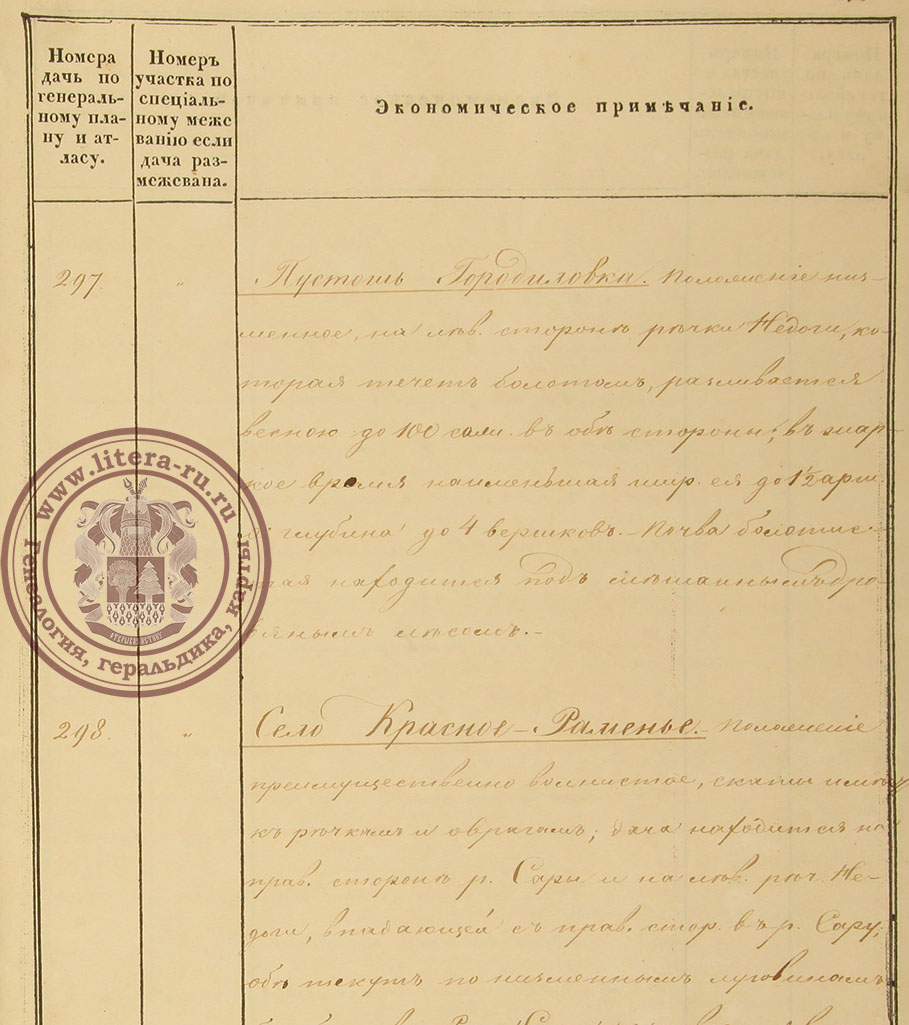 Номера дачъ по генераль- ному пла- ну и ат- ласу.
Номеръ участка по спеціаль- ному меже ванію если дача раз- межевана.
Экономическое примѣчаніе.
297. " Пустошь Городиловка. Положеніе низ-
менное, на лѣв. сторонѣ рѣчки Недоги, ко-
торая течетъ болотомъ, разливается
весною до 100 саж. въ обѣ стороны; въ жар-
кое время наименьшая шир. ея до 1½ арш.
глубина до 4 вершковъ. Почва болотис-
тая находится подъ смѣшаннымъ дро-
вянымъ лѣсомъ.-
298. " Село Красное-Раменье.- Положеніе
преимущественно волнистое, скаты имѣетъ
къ рѣчкамъ и оврагамъ; дача находится на
прав. сторонѣ р. Сары и на лѣв. рѣч. Не-
доги, впадающей съ прав. стор. въ р. Сару;
обѣ текутъ по низменнымъ луговинамъ
www.litera-ru.ru
Генеалогия, геральдика, карты